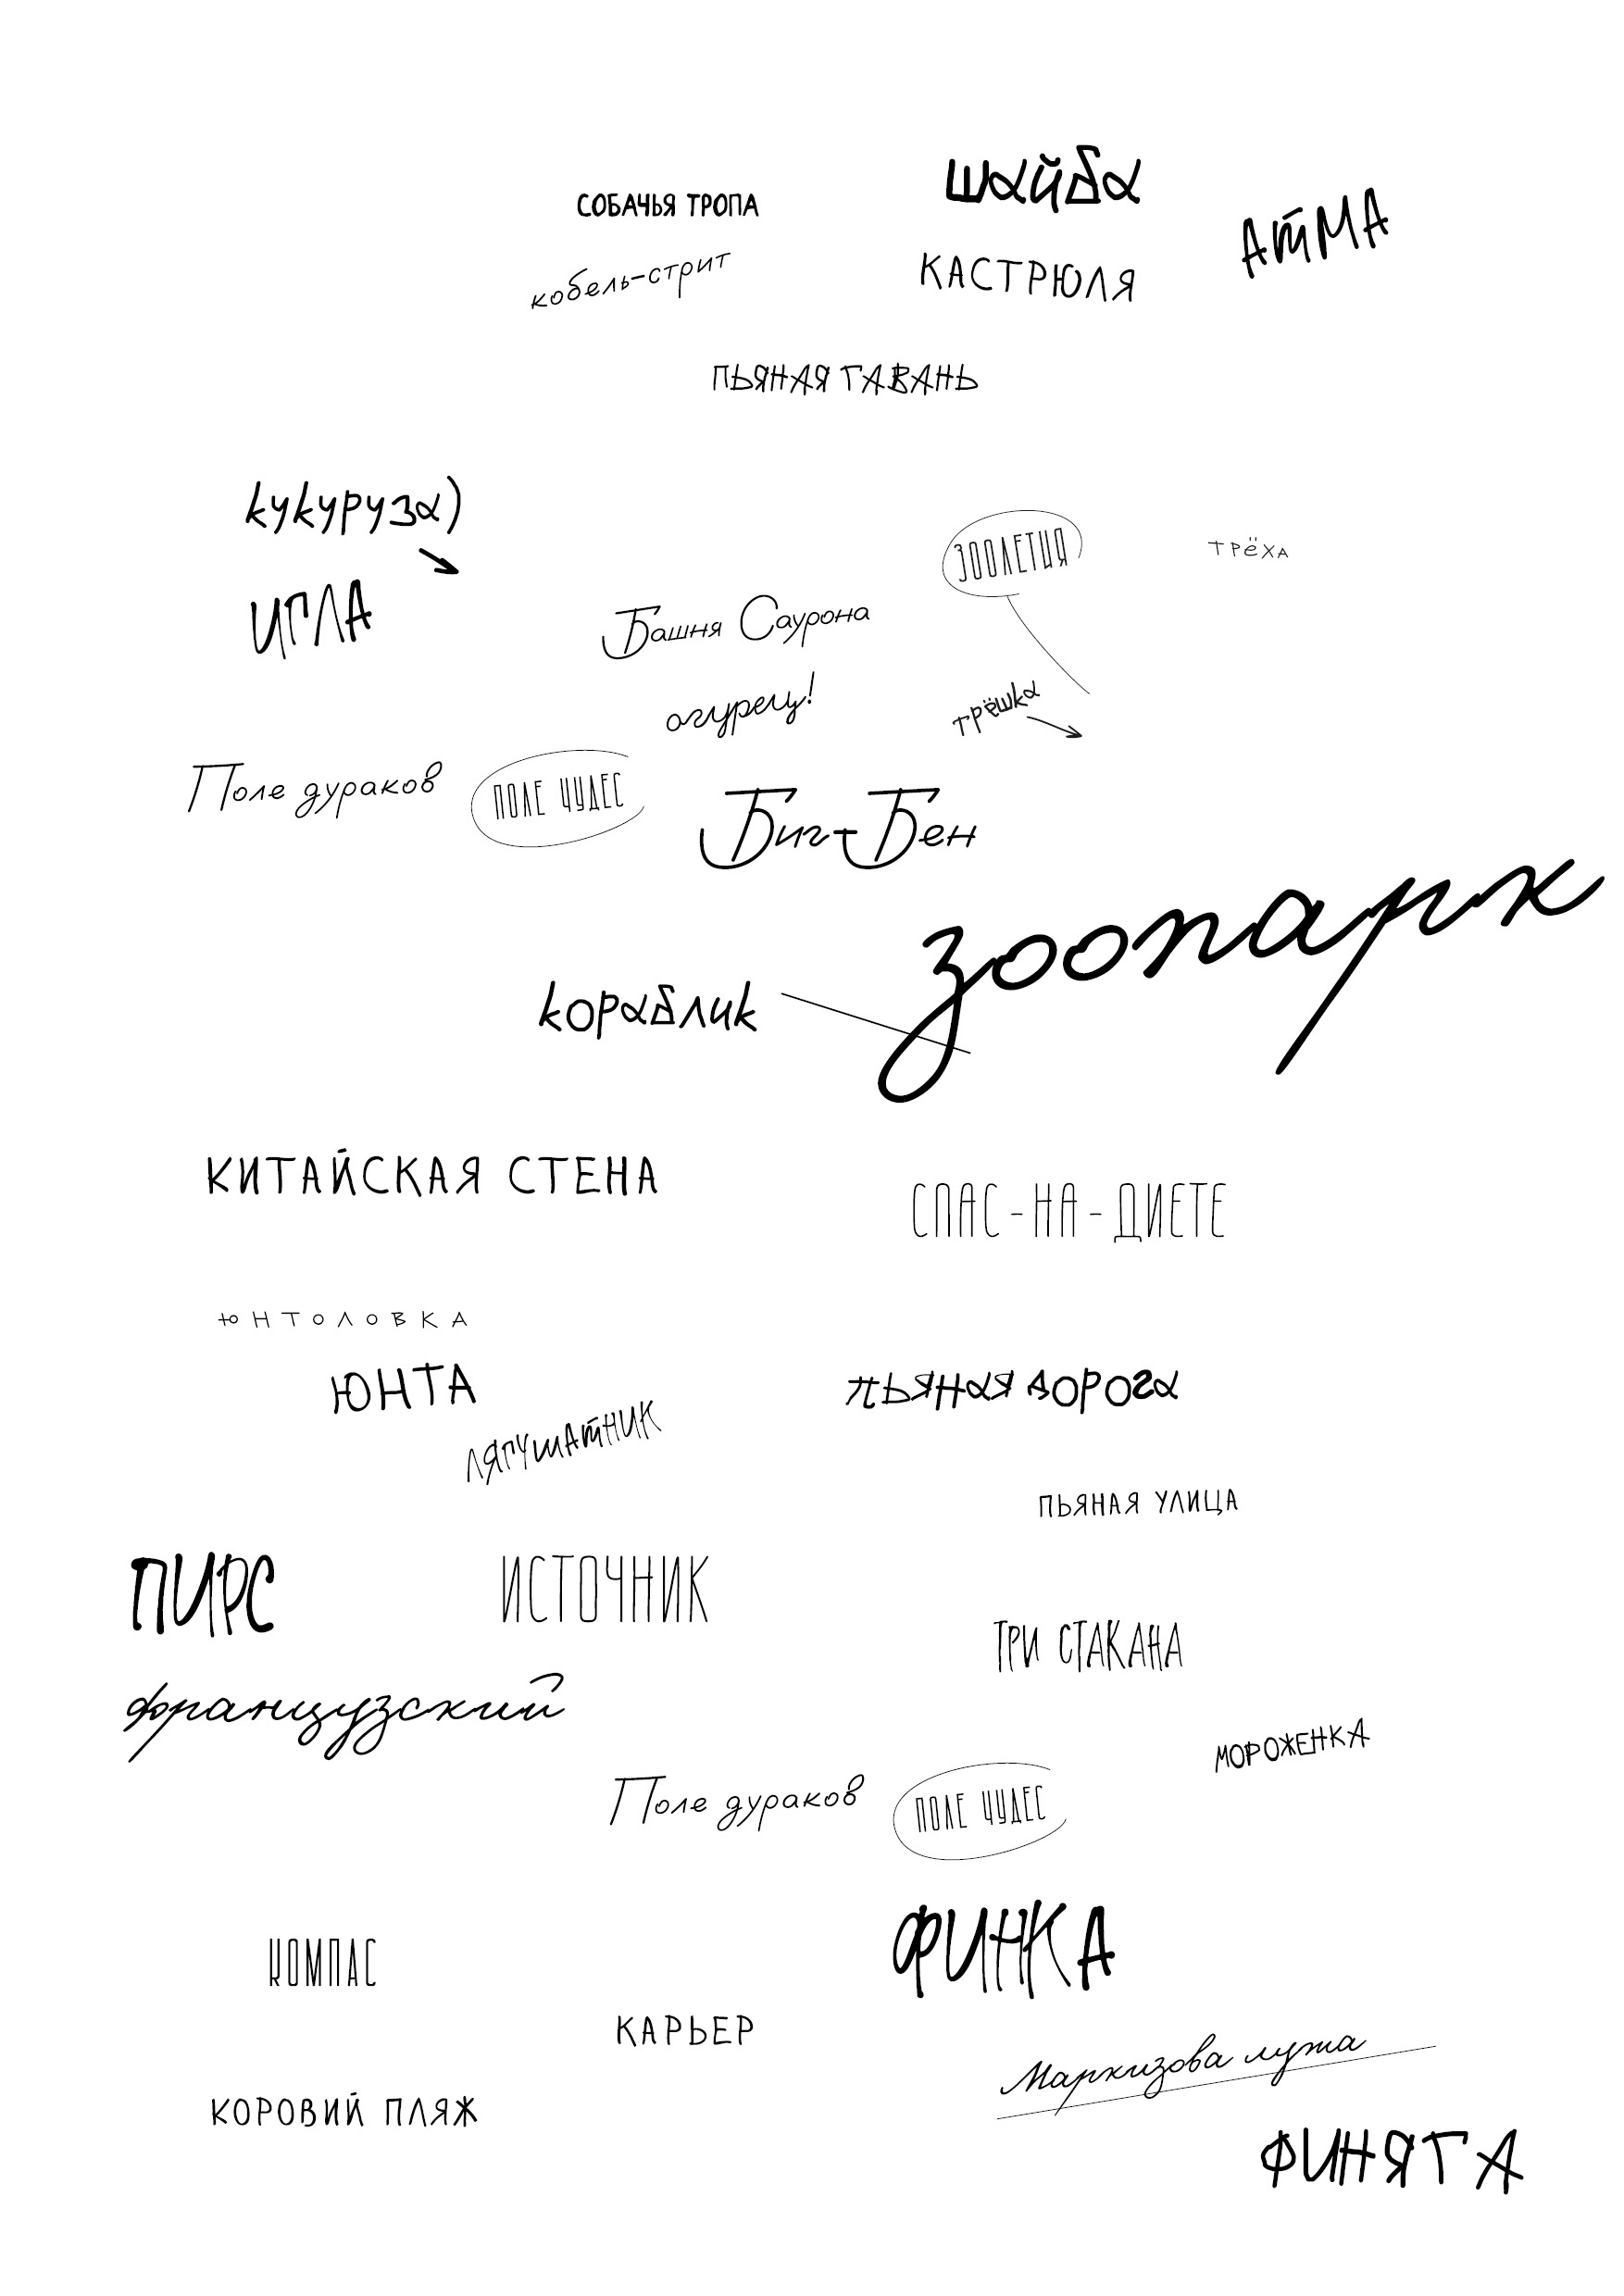 шайба
СОБАЧЬЯ ТРОПА
АТМА
кобель-стрит
КАСТРЮЛЯ
ПЬЯНАЯ ГАВАНЬ
кукуруза)
ЗООЛЕТИЯ
ТРЁХА
ИГЛА
Башня Саурона
огурец!
трёшка
Поле дураков
ПОЛЕ ЧУДЕС
Биг-Бен
зоопарк
кораблик
КИТАЙСКАЯ СТЕНА
СПАС-НА-ДИЕТЕ
ЮНТОЛОВКА
ЮНТА
пьяная дорога
ЛЯГУШАТНИК
ПЬЯНАЯ УЛИЦА
ПИРС
ИСТОЧНИК
ТРИ СТАКАНА
французский
МОРОЖЕНКА
Поле дураков
ПОЛЕ ЧУДЕС
ФИНКА
КОМПАС
КАРЬЕР
Маркизова лужа
КОРОВИЙ ПЛЯЖ
ФИНЯГА